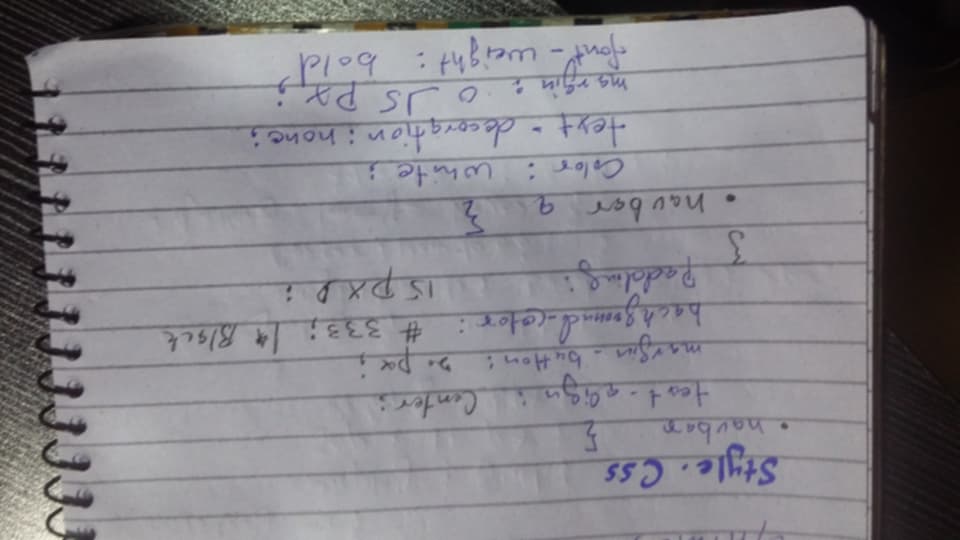 Style.Css
.navbar {
text-align: Center;
margin-button: 20px;
background-color: #333; /* Black
Padding: 15px 0;
}
.navbar a {
Color: white;
text-decoration: none;
margin: 0 15px;
font-weight: bold